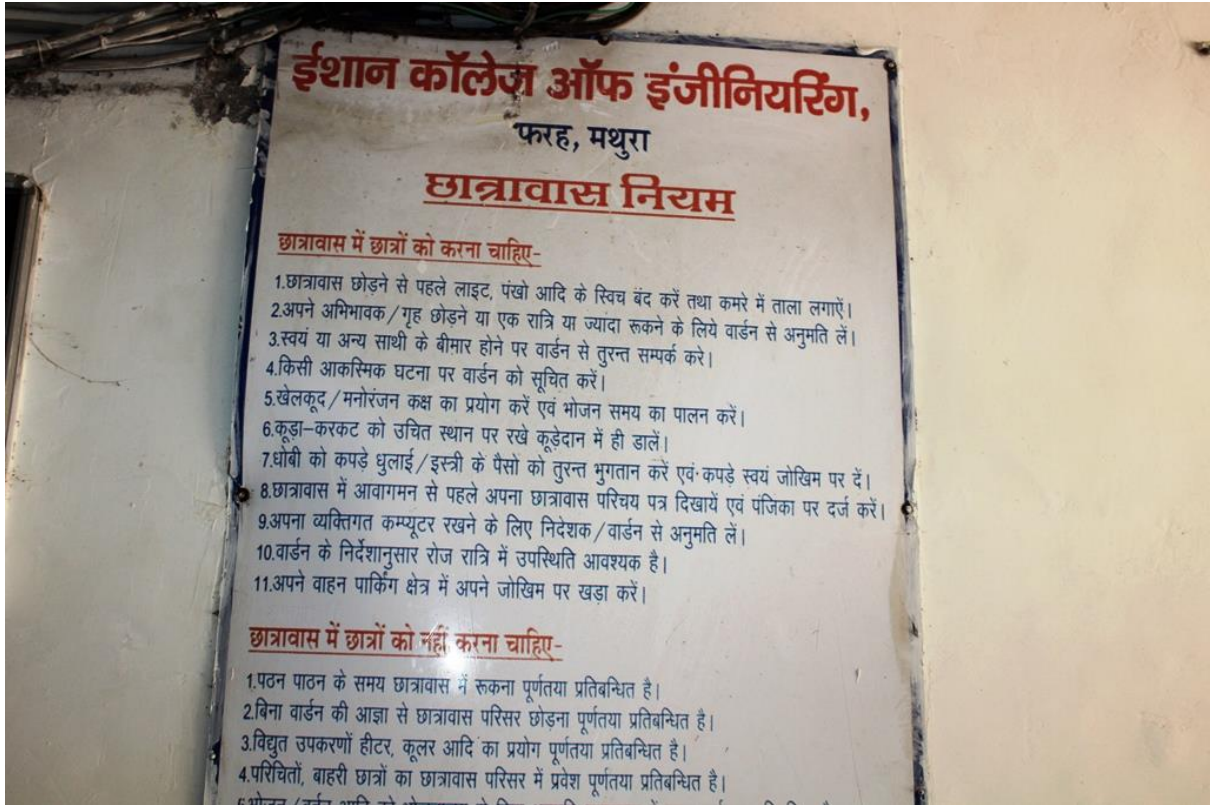 ईशान कॉलेज ऑफ इंजीनियरिंग,
फरह, मथुरा
छात्रावास नियम
छात्रावास में छात्रों को करना चाहिए-
1.छात्रावास छोड़ने से पहले लाइट, पंखो आदि के स्विच बंद करें तथा कमरे में ताला लगाऐं।
2.अपने अभिभावक/गृह छोड़ने या एक रात्रि या ज्यादा रूकने के लिये वार्डन से अनुमति लें।
3.स्वयं या अन्य साथी के बीमार होने पर वार्डन से तुरन्त सम्पर्क करे।
4.किसी आकस्मिक घटना पर वार्डन को सूचित करें।
5.खेलकूद/मनोरंजन कक्ष का प्रयोग करें एवं भोजन समय का पालन करें।
6.कूड़ा-करकट को उचित स्थान पर रखे कूड़ेदान में ही डालें।
7.धोबी को कपड़े धुलाई/इस्त्री के पैसों को तुरन्त भुगतान करें एवं कपड़े स्वयं जोखिम पर दें।
8.छात्रावास में आवागमन से पहले अपना छात्रावास परिचय पत्र दिखायें एवं पंजिका पर दर्ज करें।
9.अपना व्यक्तिगत कम्प्यूटर रखने के लिए निदेशक/वार्डन से अनुमति लें।
10.वार्डन के निर्देशानुसार रोज रात्रि में उपस्थिति आवश्यक है।
11.अपने वाहन पार्किंग क्षेत्र में अपने जोखिम पर खड़ा करें।
छात्रावास में छात्रों को नहीं करना चाहिए-
1.पठन पाठन के समय छात्रावास में रूकना पूर्णतया प्रतिबन्धित है।
2.बिना वार्डन की आज्ञा से छात्रावास परिसर छोड़ना पूर्णतया प्रतिबन्धित है।
3.विद्युत उपकरणों हीटर, कूलर आदि का प्रयोग पूर्णतया प्रतिबन्धित है।
4.परिचितों, बाहरी छात्रों का छात्रावास परिसर में प्रवेश पूर्णतया प्रतिबन्धित है।